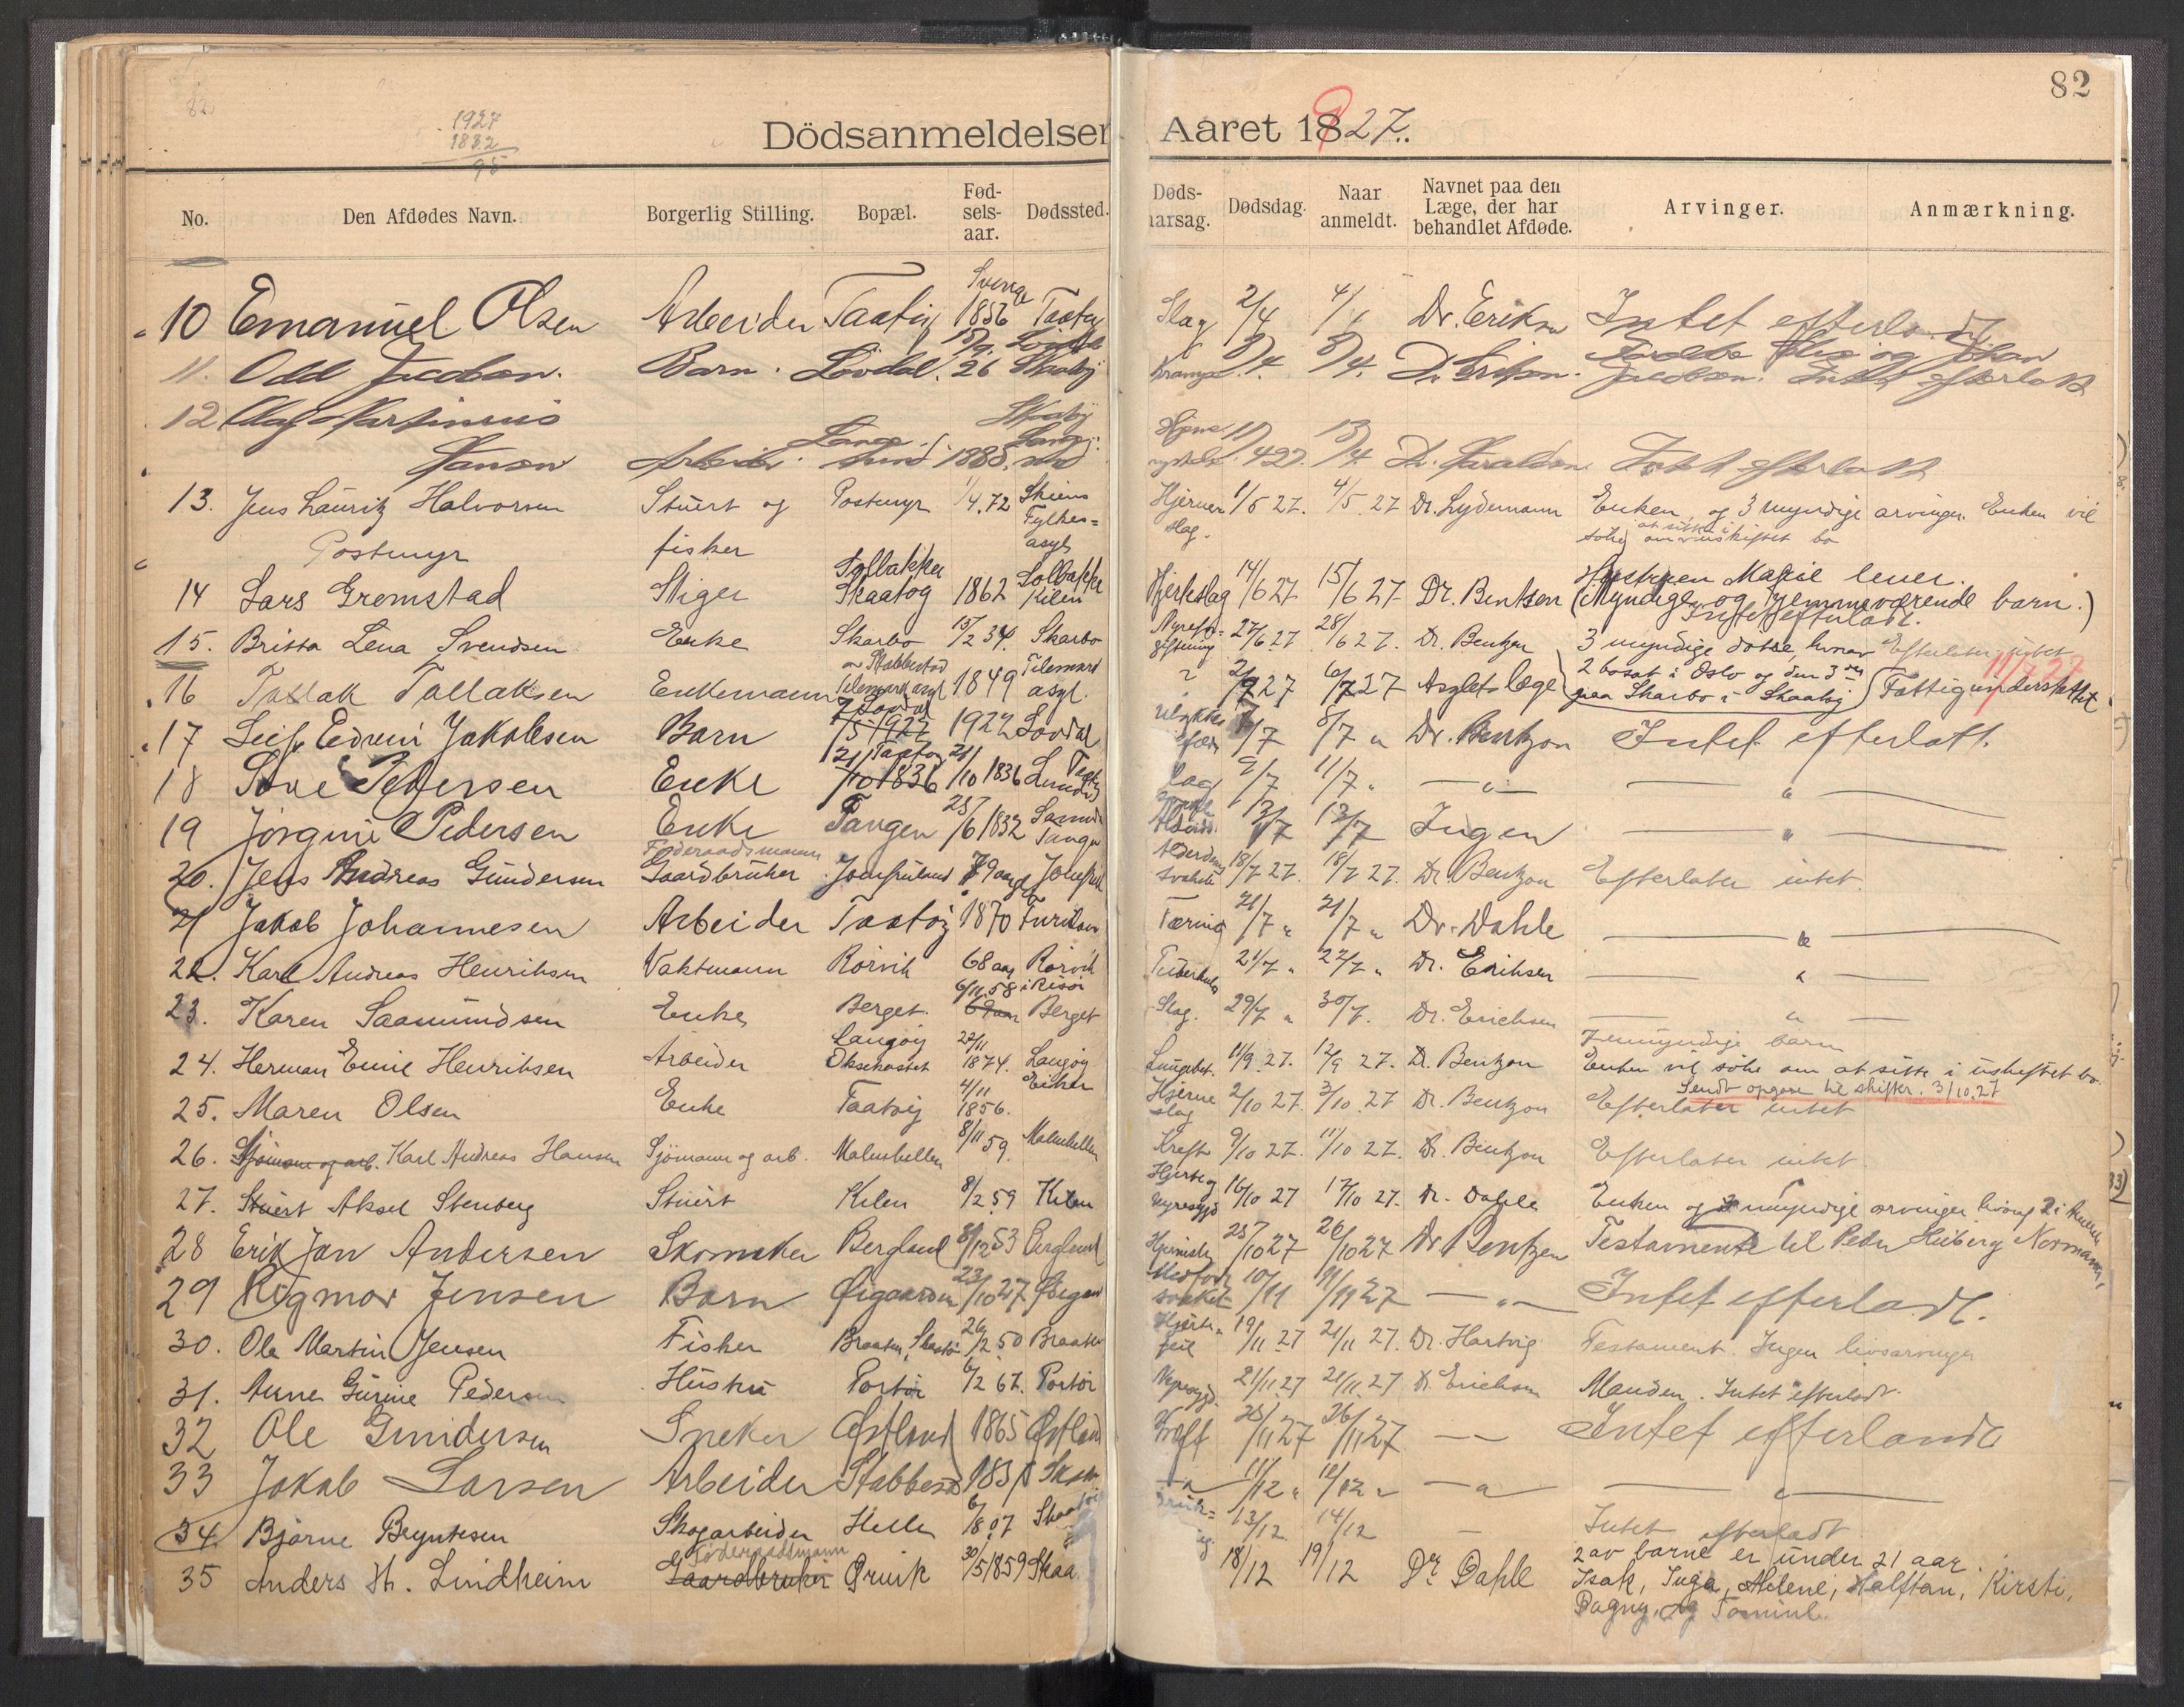 82
1927
1832
95
Dödsanmeldelser Aaret 1827.
82
No. Den Afdødes Navn. Borgerlig Stilling. Bopæl. Fødselsaar. Dødssted. Dødsaarsag. Dødsdag. Naar anmeldt. Navnet paa den Læge, der har behandlet Afdøde. Arvinger. Anmærkning.
10 Emanuel Olsen Arbeider Taatøy 1856 Taatøy Slag 2/4 4/4 Dr. Eriksen Intet efterladt
11. Odd Jacobsen. Barn. Løvdal. 26 Skaatøy Krampe 3/4. Dr. Eriksen. Jacobsen. Intet efterladt
12 Olaf Martinius
Hansen Arbeider. Langesund 1888. 11/4 27. 13/4. Dr. Intet efterladt
13. Jens Lauritz Halvorsen Stuert og Postmyr 1/4.72 Skiens Fylkes= asyl Hjerneslag. 1/5 27. 4/5 27 Dr. Lydemann Enken og 3 myndige arvinger. Enken vil
Postmyr fisker søke om at sitte i uskiftet bo
14 Lars Gromstad Stiger Solbakken Skaatøy 1862 Solbakke Kilen Hjerteslag 14/6 27 15/6 27 Dr. Bentsen Hustruen Marie lever.
(Myndige og hjemmeværende barn.)
Intet efterladt.
15. Britta Lena Svendsen Enke Skarbo 15/2 34. Skarbo 27/6 27 28/6 27. Dr. Bentzen 3 myndige døtre, hvorav Efterlater intet
16 Tallak Tallaksen Enkemann Stabbestad Telemark asyl 1849 Telemark asyl. ? 2/7 27 6/7 27 Asylets lege 2 bosat i Oslo og den 3die paa Skarbo i Skaatøy Fattigunderstøttet 11/7 27
17 Leif Edvin Jakobsen Barn Løvdal 7/5 1922 1922 Løvdal 7/7 8/7 " Dr. Bentzon Intet efterlatt.
18 Pedersen Enke Taatøy 21/10 1836 21/10 1836 9/7 11/7 " — " — — " —
19 Jørgine Pedersen Enke Tangen 25/6 1832 Tangen 13/7 13/7 Ingen — " —
20. Jens Andreas Gundersen Føderaadsmann Gaardbruker Jomfruland 79 aar Alderdomssvakhet 18/7 27. 18/7 27. Dr. Bentzon Efterlater intet.
21 Jakob Johannesen Arbeider Taatøy 1870 Tæring 21/7 " 21/7 " Dr. Dahle — " —
22. Karl Andreas Henriksen Vaktmann Rørvik 68 aar Rørvik Tuberkulos 21/7 " 22/7 " Dr. Eriksen — " —
23. Karen Saamundsen Enke Berget 6/11.58 i Risør 69 aar Berget Slag. 29/7 " 30/7. Dr. Erichsen — " —
24. Herman Emil Henriksen Arbeider Langøy Oksekastet 22/11 1874. Langøy Lungebet. 11/9 27. 12/9 27. Dr. Bentzon 7 umyndige barn
Enken vil søke om at sitte i uskiftet bo.
Sendt opgave til skiftr. 3/10.27
25. Maren Olsen Enke Taatøy 4/11 1856. Eiker Hjerneslag 2/10 27. 3/10 27 Dr. Bentzon Efterlater intet
26. Sjømann og arb. Karl Andreas Hansen Sjømann og arb. Malmhellen 8/11 59. Malmhellen Kreft 9/10 27. 11/10 27. Dr. Bentzon Efterlater intet
27. Stuert Aksel Stenberg Stuert Kilen 8/2 59 Kilen Hjerte og nyresygd 16/10 27 17/10 27. Dr. Dahle Enken og myndige arvinger hvorav 2 i
28 Erik Jan Andersen Skomaker Bergland 8/12 53 Bergland 25/10 27 26/10 27 Dr. Bentzen Testamente til Peder Heiberg Normann
29 Rigmor Jensen Barn Øigaarden 23/10 27 Medfødt svakhet 10/11 11/11 27 — " — Intet efterladt.
30. Ole Martin Jensen Fisker Braaten, Skaatøy 26/2 50 Braaten Hjertefeil 19/11 27 21/11 27. Dr. Hartvig Testament. Ingen livsarvinger
31. Anne Gurine Pedersen Hustru Portør 6/2 67. Portør Nyresygd. 21/11 27 21/11 27 Dr. Erichsen Manden. Intet efterladt.
32 Ole Gundersen Sneker Østland 1865 Østland Kræft 25/11 27 26/11 27 — Intet efterlandt
33 Jakob Larsen Arbeider Stabbestad Skaa — " 11/12 " 12/12 " — " — — " —
34. Bjarne Bryntesen Skogarbeider Helle 6/8 07 Skaatøy 13/12 14/12 — Intet efterladt
35 Anders H. Lindheim Føderaadsmann Gaardbruker Ørvik 30/5 1859 Skaa 18/12 19/12 Dr. Dahle 2 av barne er under 21 aar.
Isak, Inga, Helene, Halftan, Kirsti,
Dagny, og Tomine.